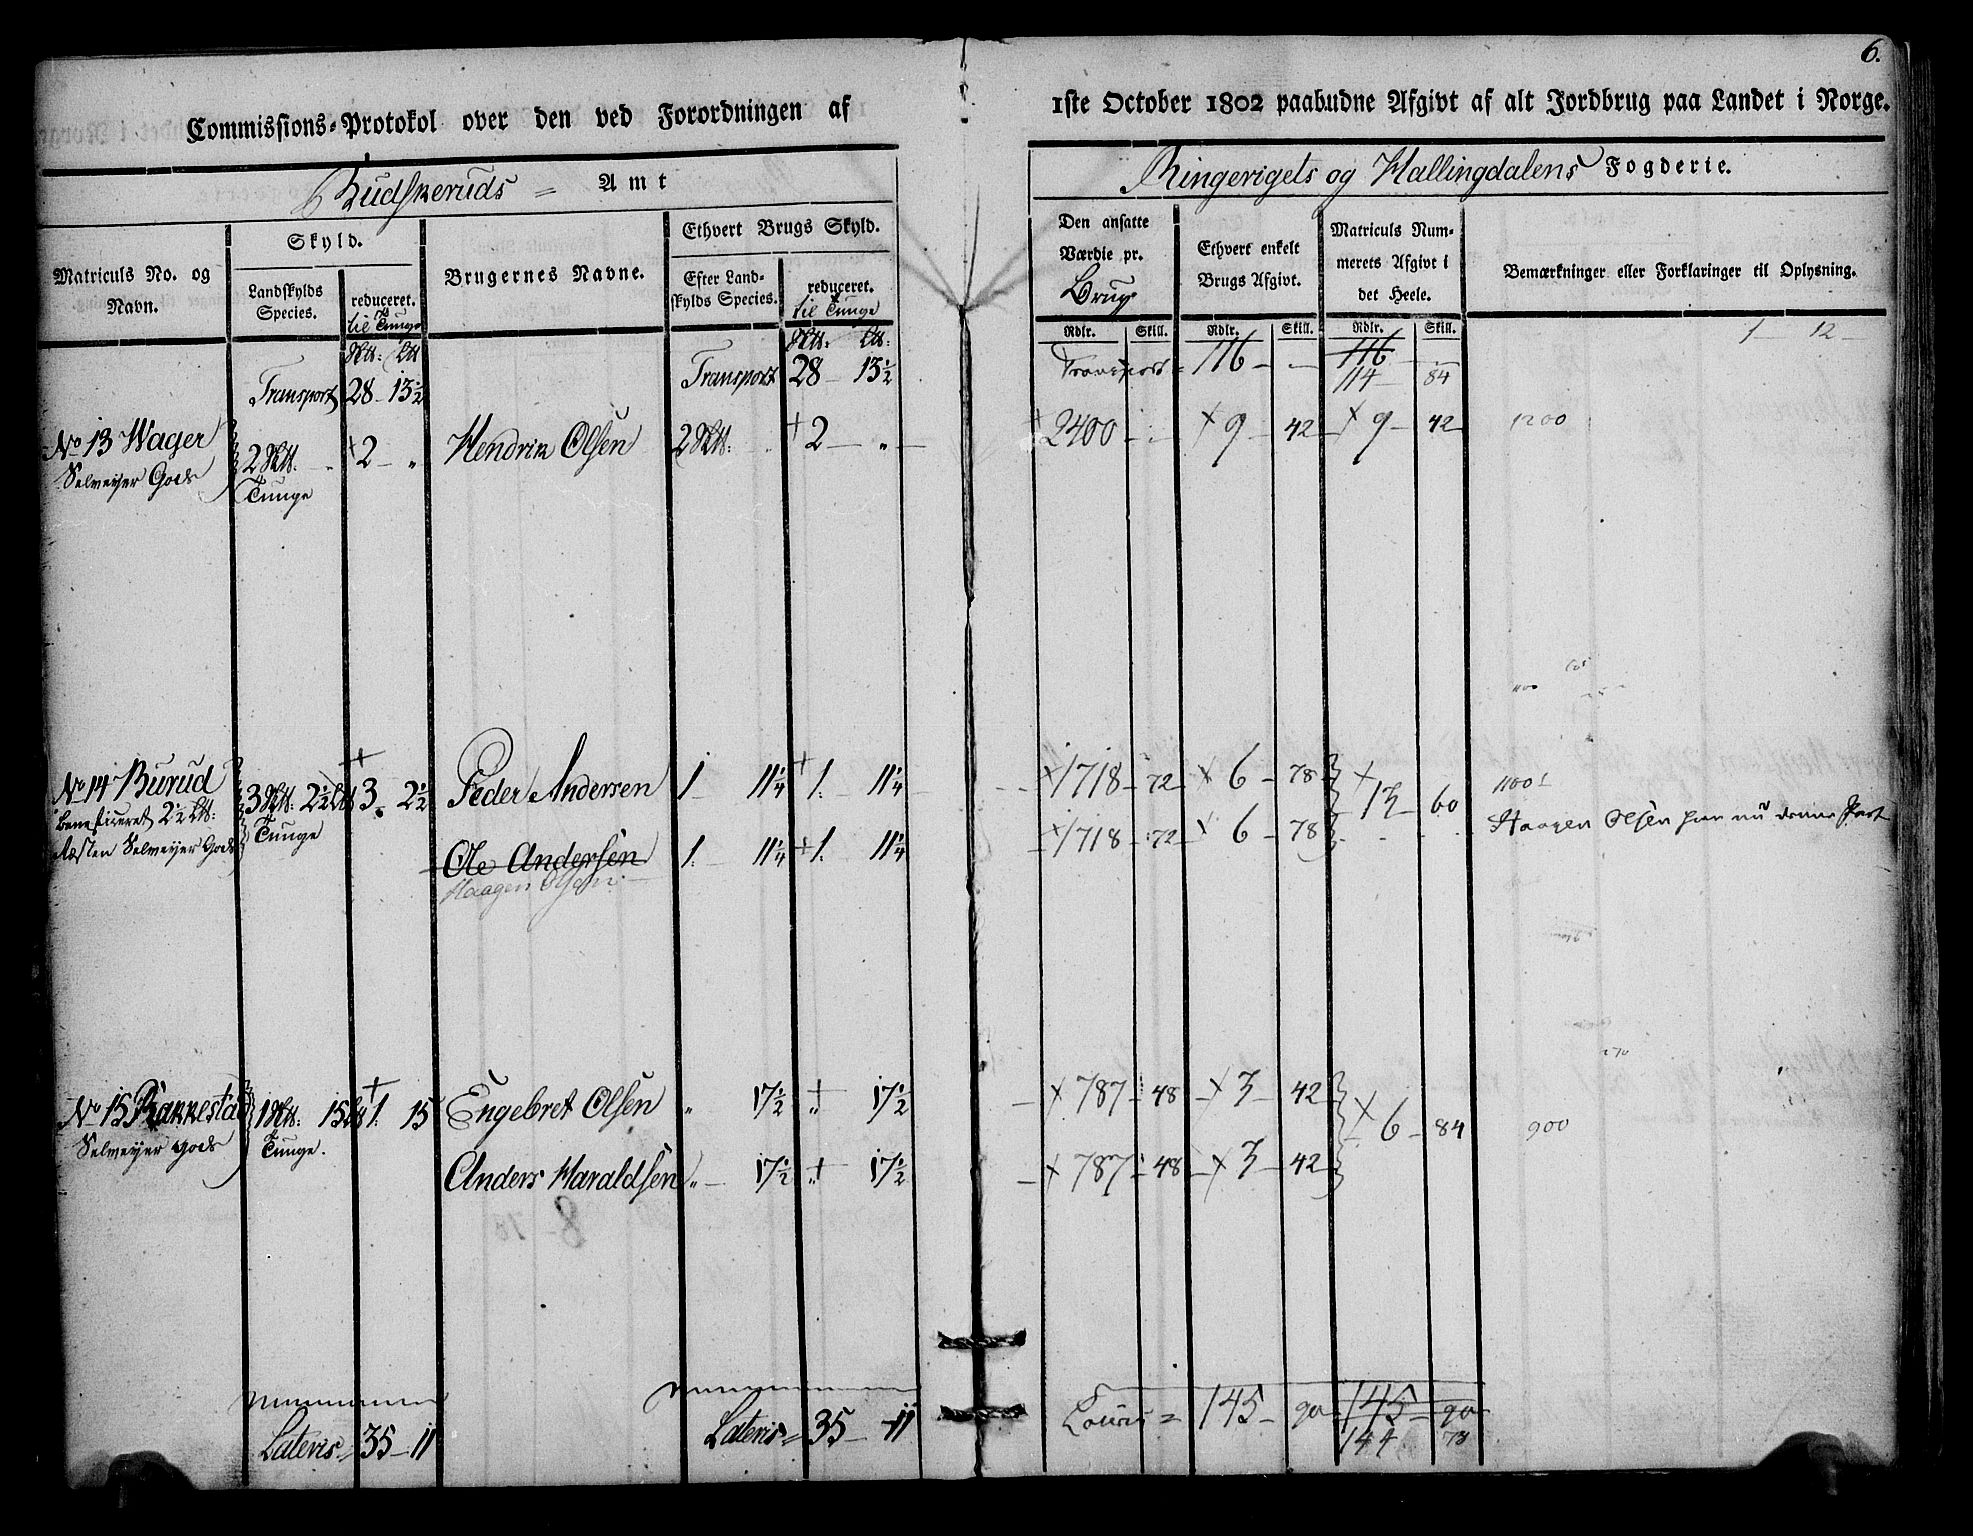 6.
Commissions-Protokol over den ved Forordningen af 1ste October 1802 paabudne Afgivt af alt Jordbrug paa Landet i Norge.
Budskeruds = Amt
Ringerigets og Hallingdalens Fogderie.
Matriculs No. og Navn.
Skyld.
Landskylds Species.
reduceret. til Tunge
Brugernes Navne.
Ethvert Brugs Skyld.
Efter Landskylds Species.
reduceret. til Tunge
Den ansatte Værdie pr. Brug
Ethvert enkelt Brugs Afgivt.
Matriculs Nummerets Afgivt i det Heele.
Bemærkninger eller Forklaringer til Oplysning.
Rdlr. Skill. Rdlr. Skill. Rdlr. Skill.
1 12
Transport 28 - 13½ Transport 28 13½ Transport = 116 - 116
114 84
No 13 Wager 2 +2 - " Hendrik Olsen 2 +2 - " +2400 - × 9 - 42 × 9 - 42 1200
Selmeyer Gods Tunge
1100
No 14 Burud 3 2½ +3. 2½ Peder Andersen 1 11¼ +1. 11¼ ×1718 - 72 × 6 - 78 × 13 - 60 1100
Beneficeret 2½ Tunge
Resten Selmeyer Gods
Ole Andersen 1. 11¼ +1. 11¼ ×1718 - 72 × 6 - 78 Haagen Olsen har nu denne Part
Haagen Olsen
270
No 15 Rakkestad 1 15 +1. 15 Engebret Olsen " 17½ + " 17½ × 787 - 48 × 3 - 42 × 6 - 84 900
Selmeyer Gods Tunge.
Anders Haraldsen " 17½ + " 17½ × 787 - 48 × 3 - 42
Lateris = 35 - 11 Lateris = 35 - 11 Lateris = 145 - 90 145 - 90
144 73